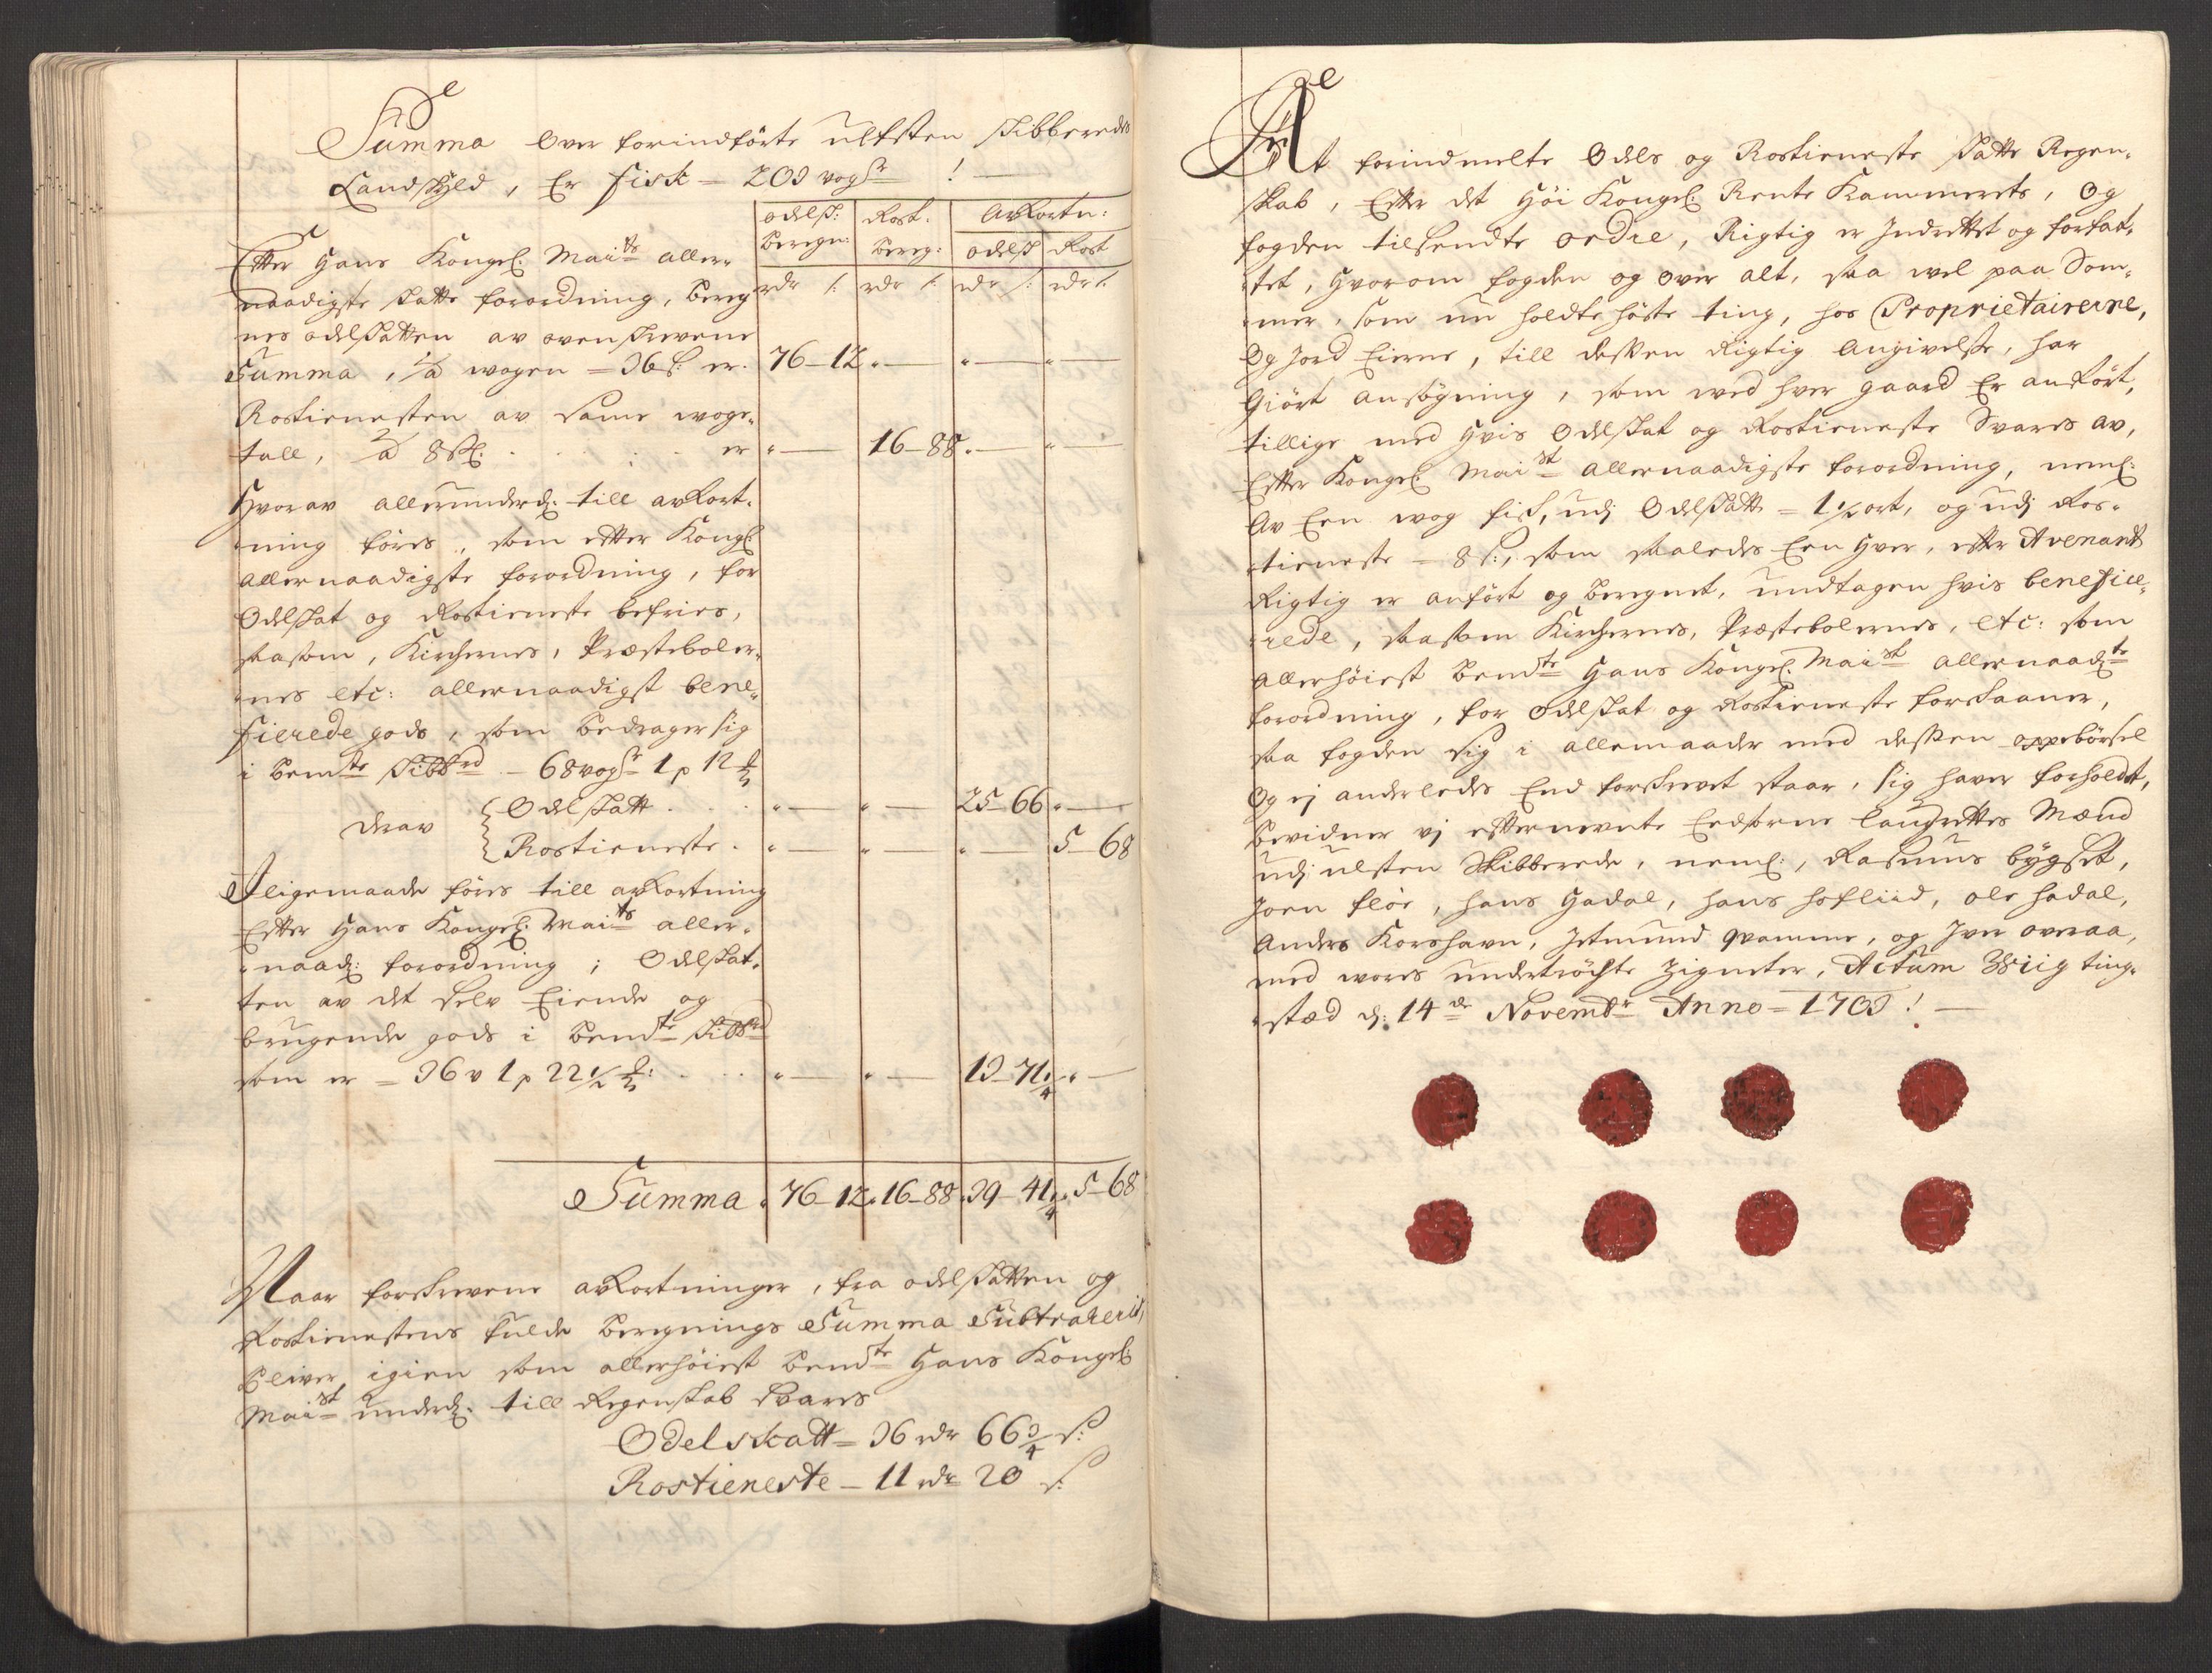 Summa over forindførte ulfsten skibberedes
Landskyld, Er fisk = 203 vogr !
odelsk: Rost. AvKortn:
Beregn: bereg: odelsk Rost
rdr s: rdr s: rdr s: rdr s:
Efter Hans Kongel: Maits aller-
naadigste skatte forordning, bereg
nes odelskatten av ovenskrevene
Summa, á wogen = 36 s: er. 76-12
Rostienesten av samme woge-
tall, á 8 sk: er 16-88
Hvorav allerunderd: till avkort-
ning føres, som efter Kongl:
allernaadigste forordning, for
Odelskat og Rostieneste befries,
saasom, Kirchernes, Præsteboler-
nes etc: allernaadigst bene-
ficerede gods, som bedrager sig
i bemte skibbrd - 68 vogr 1 p 12
derav Odelskatt 25-66
Rostieneste 5-68
J ligemaade føres till avkortning
Efter Hans Kongel: Maits aller-
naad: forordning; Odelskat-
ten av det selv Eiende og
brugende gods i bemte skibbrd
som er = 36 v 1 p 22 1/2 13-71 1/4
Summa 76-12 16-88 39-41 1/4 5-68
Naar forskrevene avkortninger, fra odelskatten og
Rostienestens fulde beregnings Summa Subtraherit,
bliver igien som allerhøiest bemte Hans Kongel:
Maist underd: till Regenskab svares
Odelskatt = 36 rdr 66 3/4 s:
Rostieneste - 11 rdr 20 s:
At forindmelte Odels og Rostieneste skatte Regen-
skab, Efter det Høi Kongel: Rente Kammerets, og
fogden tilsendte ordre, Rigtig er Indrettet og forfat-
tet, Hvorom fogden og over alt, saa wel paa Som-
mer, som nu holdte høste ting, hos Proprietairerne,
Og Jord Eierne, till dessen Rigtig angivelse, har
Giørt ansøgning, som wed hver gaard Er anført,
tillige med Hvis Odelskat og Rostieneste Svares av,
Efter Kongel: Maist allernaadigste forordning, neml:
Av Een wog fisk, udj Odelskatt = 1 1/2 ort, og udj Ros-
tieneste - 8 s:, som saaledes Een Hver, efter Avenant
Rigtig er anført og beregnet, undtagen hvis benefice-
rede, saasom Kirchernes, Præstebolernes, etc: som
allerhøiest bemte Hans Kongel: Maist allernaadte
forordning, for Odelskat og Rostieneste forskaaner,
saa fogden sig i allemaader med dessen oppebørsel
Og ej anderledes End forskrevet staar, sig haver forholdt,
bevidner vj efternevnte Eedsorne laugrettes Mænd
udj ulsten Skibberede, neml:, Rasmus bygset,
Joen fløe, hans Hadal, hans hofliid, ole hadal,
Anders Korshavn, Jetmund qvamme, og Iver overaa,
med wores undertrøchte Zigneter, Actum Wiig ting-
stæd d: 14de Novembr Anno = 1703 !